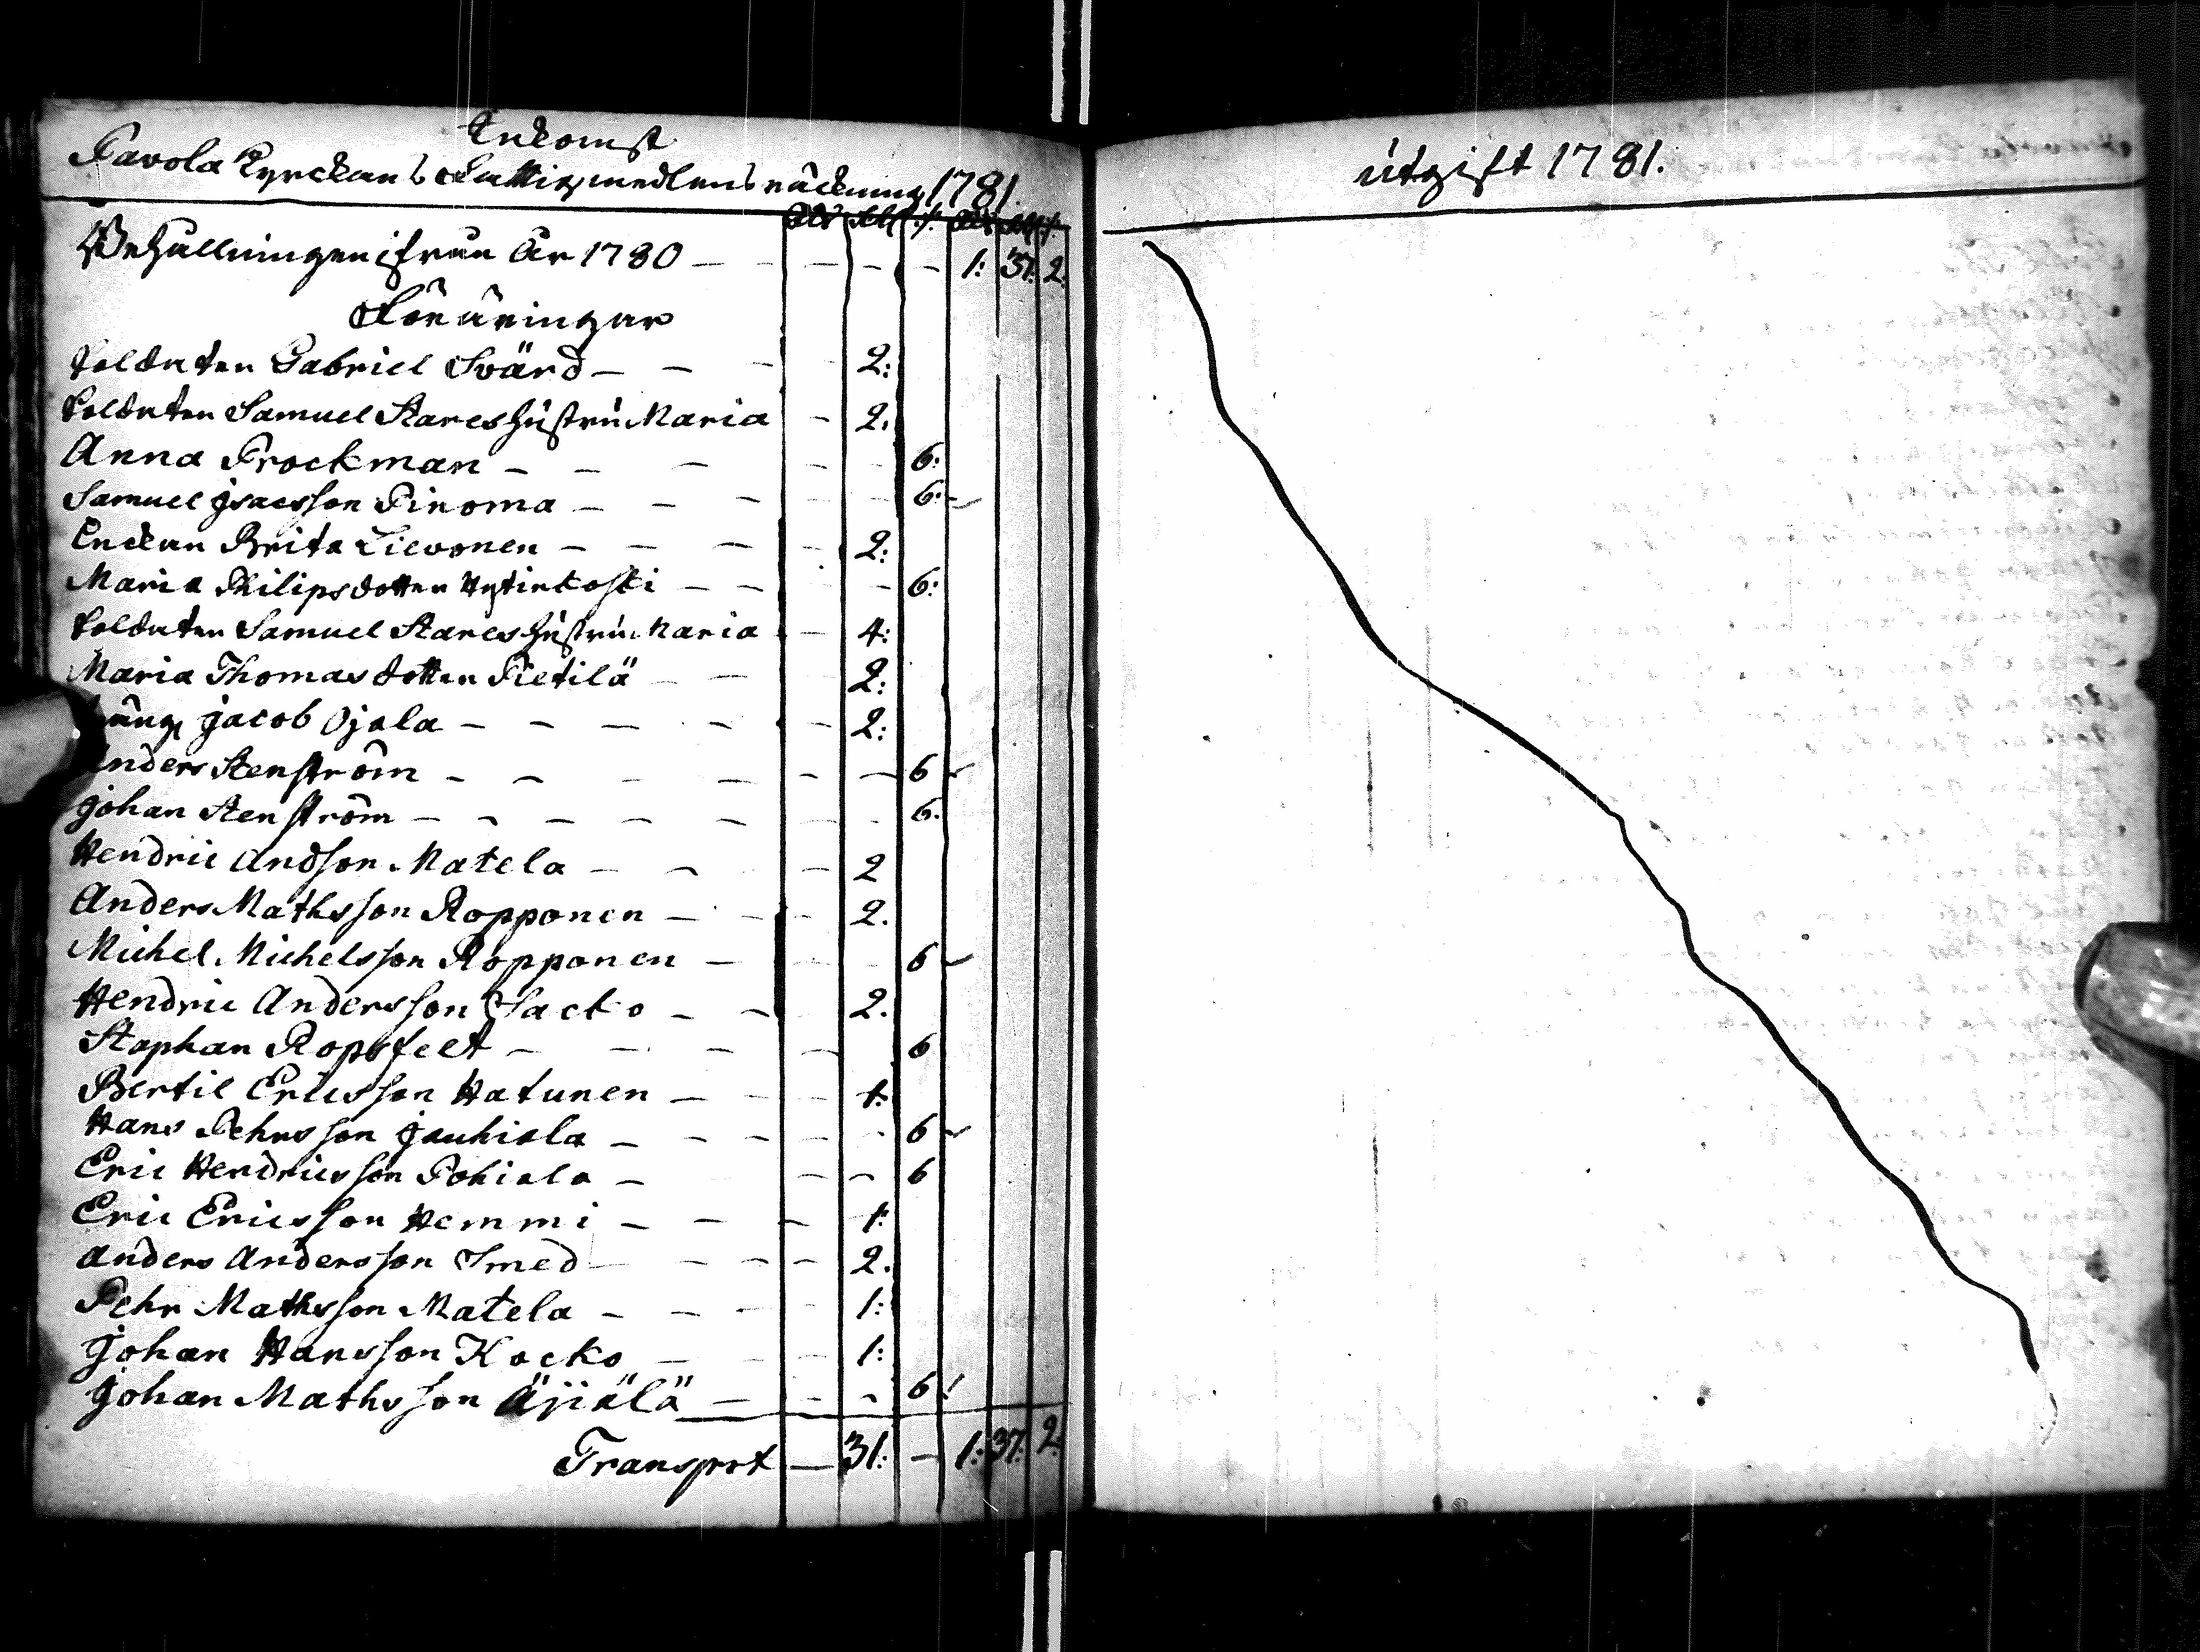 Inkomst
Pavola Kyrckans Fattigmedlens räckning 1781.
Rdr Sch /. Rdr Sch /.
Behållningen ifrån År 1780 — — — — 1: 37: 2.
Föräringar
Soldaten Gabriel Svärd — — — 2:
Soldaten Samuel Stares hústrú Maria — 2.
Anna Brockman — — — — — 6:
Samuel jsacsson Pinoma — — — — 6:
Enckan Brita Lievonen — — — — 2:
Maria Philipsdotter Hytinkoski — — — 6:
Soldaten Samuel Stares hústrú Maria — 4:
Maria Thomasdotter Pietilä — — 2:
jacob Ojala — — — — — 2:
Anders Stenström — — — — — — 6
johan Stenström — — — — — — 6.
Hendric Andsson Matela — — — 2
Anders Mathsson Ropponen — — — 2.
Michel Michelsson Ropponen — — — 6
Hendric Andersson Sacko — — 2.
Staphan Ropsfelt — — — — 6
Bertil Ericsson Hatunen — — — 1:
Hans Pehrsson jauhiala — — — — — 6
Eric Hendricsson Pohiala — — — 6
Eric Ericsson Hemmi — — — 1:
Anders Andersson Smed — — — — 2.
Pehr Mathsson Matela — — — — 1:
johan Hansson Kocko — — — 1:
johan Mathsson Äjiälä — — — 6
Transprt — 31: — 1: 37: 2.
útgift 1781.